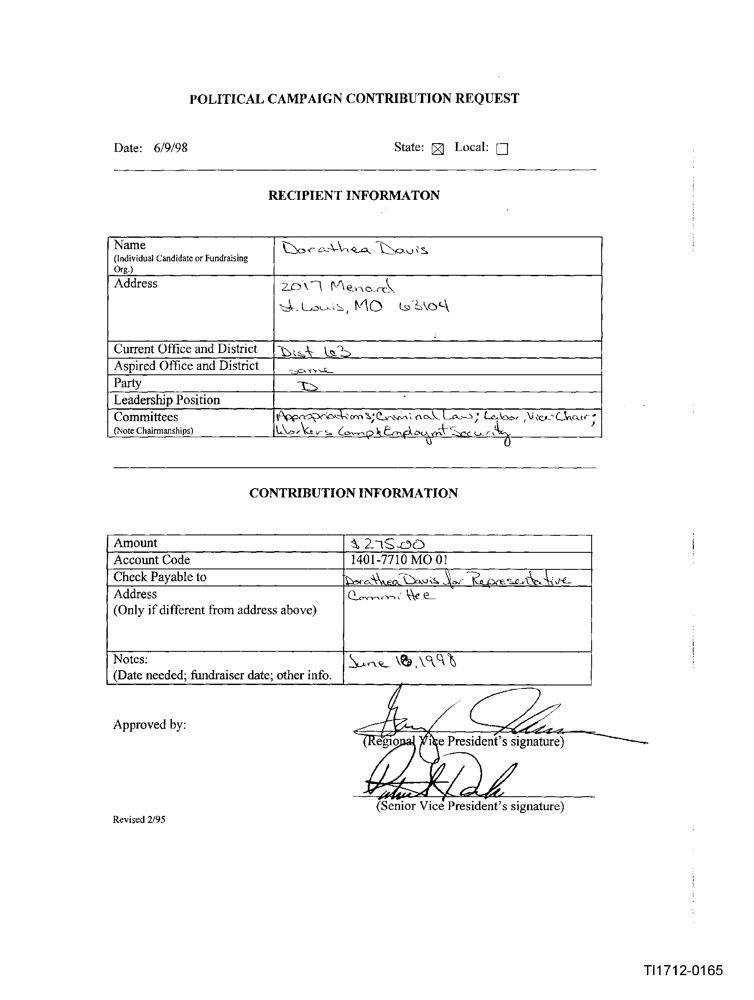 POLITICAL CAMPAIGN CONTRIBUTION REQUEST
Date: 6/9/98 State: ☒ Local: ☐
RECIPIENT INFORMATON
Name Dorathea Davis
(Individual Candidate or Fundraising
Org.)
Address 2017 Menard
St. Louis, MO 63104
Current Office and District Dist 63
Aspired Office and District same
Party D
Leadership Position
Committees Appropriations; Criminal Law; Labor, Vice-Chair;
(Note Chairmanships) Workers Comp & Employmt Security
CONTRIBUTION INFORMATION
Amount $275.00
Account Code 1401-7710 MO 01
Check Payable to Dorathea Davis for Representative
Address Committee
(Only if different from address above)
Notes: June 1998
(Date needed; fundraiser date; other info.
Approved by:
(Regional Vice President's signature)
(Senior Vice President's signature)
Revised 2/95
TI1712-0165